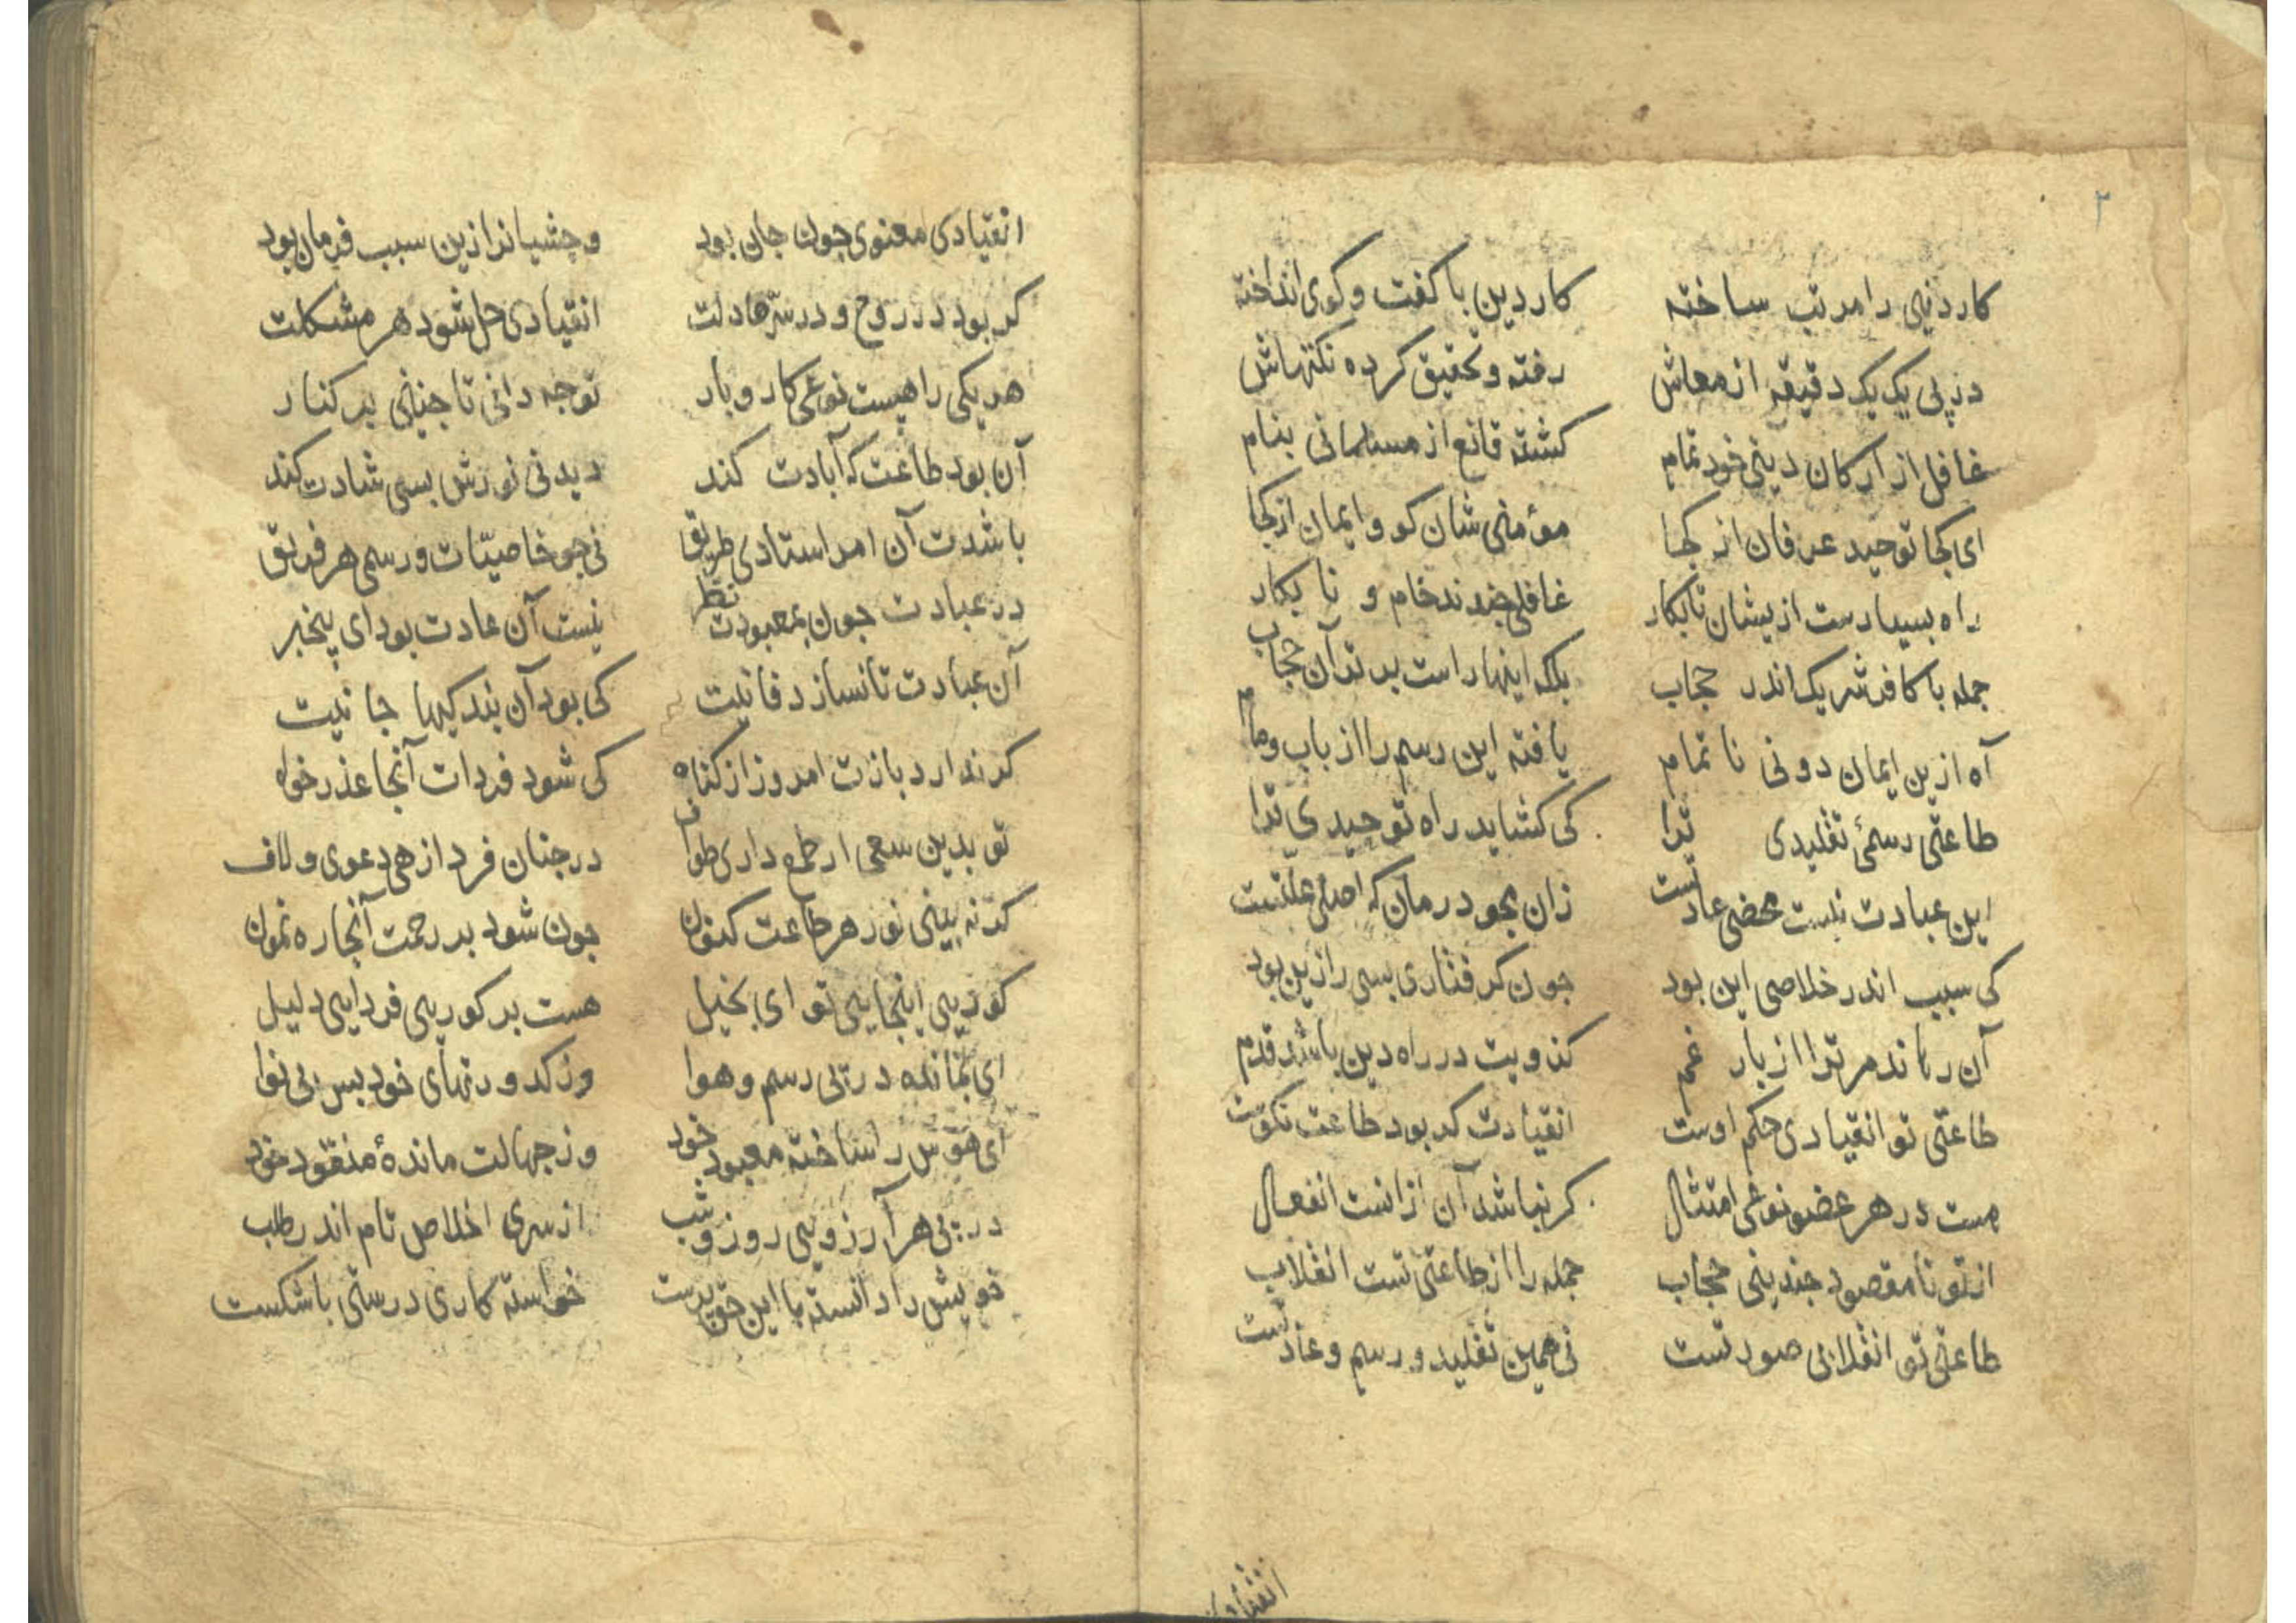 ۲
کار دنیی را مرتب ساخته کار دین با کفت و کوی انداخته
در پی یک یک دقیقه از معاش رفته و تحقیق کرده نکتهاش
غافل از ارکان دینی خود تمام کشته قانع از مسلمانی بنام
ای کجا توحید عرفان از کجا مؤمنی شان کو و ایمان از کجا
راه بسیارست ازیشان تا بکار غافلی چندند خام و نا بکار
جمله با کافر شریک اندر حجاب بلکه اینها راست بدتر آن حجاب
آه ازین ایمان دونی نا تمام یافته این رسم را از باب و مام
طاعتی رسمئ تقلیدی ترا کی کشاید راه توحیدی ترا
این عبادت نیست محضی عادتست زان بجو درمان که اصلی علتست
کی سبب اندر خلاصی این بود چون کرفتاری بسی را زین بود
آن رهاند مر ترا از بار غم کزویت در راه دین باشد قدم
طاعتی تو انقیادی حکم اوست انقیادت کر بود طاعت نکوست
هست در هر عضو نوعی امتثال کر نباشد آن ازانست انفعال
از تو تا مقصود چندینی حجاب جمله را از طاعتی تست انقلاب
طاعتی تو انقلابی صورتست نی همین تقلید و رسم و عادتست
انقیادی
انقیادی معنوی چون جان بود وحشیانرا زین سبب فرمان بود
کر بود در روح و در سرها دلت انقیادی حل شود هر مشکلت
هر یکی را هیست نوعی کار و بار تو چه دانی تا چنینی بر کنار
آن بود طاعت که آبادت کند دیدنی نورش بسی شادت کند
باشدت آن امر استادی طریق نی چو خاصیّات و رسمی هر فریق
در عبادت چون بمعبودت نظر نیست آن عادت بود ای بیخبر
آن عبادت تا نسازد فانیت کی بود آن بندکیها جانیت
کر ندارد بازت امروز از کناه کی شود فردات آنجا عذر خواه
تو بدین سعی ار طمع داری طواف در جنان فردا زهی دعوی و لاف
کر نه بینی نور هر طاعت کنون چون شود بر رحمت آنجا ره نمون
کوریی اینجایی تو ای بخیل هست بر کوریی فردایی دلیل
ای بمانده در پی رسم و هوا وز کد و رنهای خود بس بی نوا
ای هوس را ساخته معبود خود وز جهالت ماندهٔ منقود خود
در پی هر آرزویی روز و شب از سری اخلاص تام اندر طلب
خویش را دانسته با این خود پرست خواسته کاری درستی با شکست